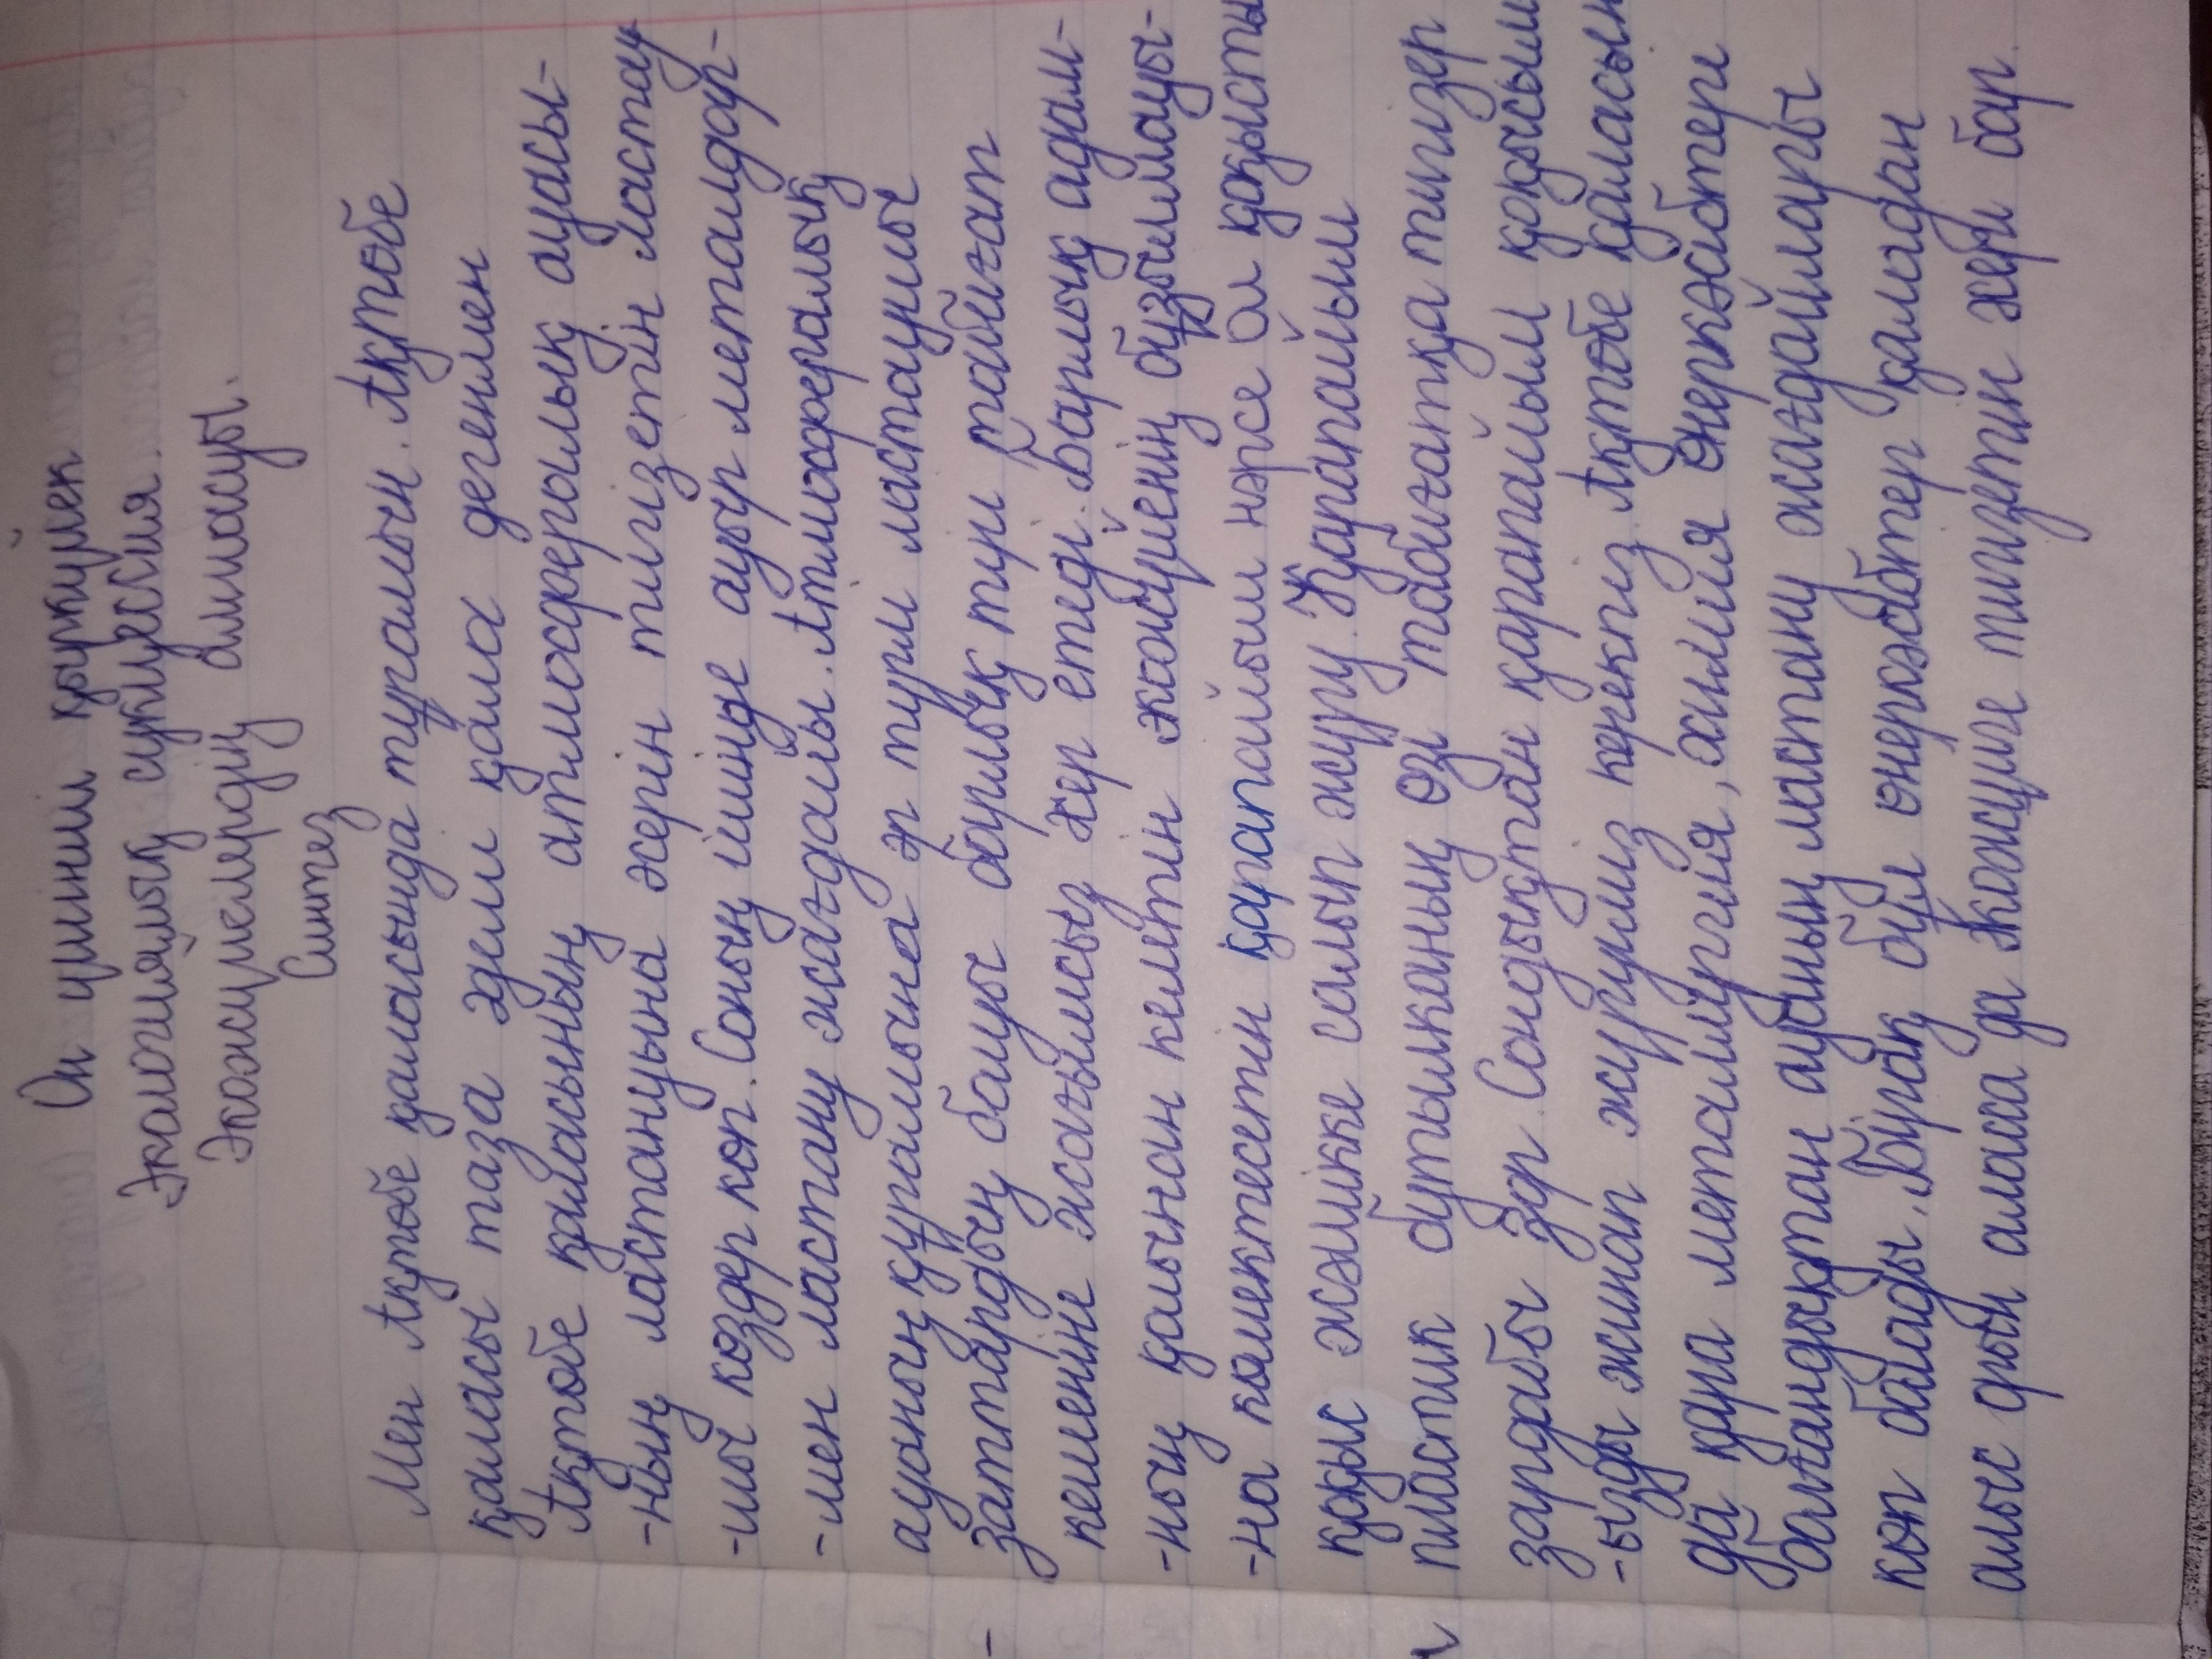 Он үшінші қыркүйек
Экологиялық сукцессия.
Экожүйелердің алмасуы.
Синтез
Мен Ақтөбе қаласында тұрамын. Ақтөбе
қаласы таза әдемі қала дегенмен
Ақтөбе қаласының атмосфералық ауасы-
-ның ластануына әсерін тигізетін ластау
-шы көздер көп. Соның ішінде ауыр металдар-
-мен ластану жағдайы. Атмосфералық
ауаның құрамына әр түрлі ластаушы
заттардың болуы барлық тірі табиғат
кешеніне жағымсыз әсер етеді. Барлық адам-
-ның қолынан келетін экожүйенің бұзылмауы-
-на көмектесетін қарапайым нәрсе ол қоқысты
қоқыс жәшікке салып жүру. Қарапайым
пластик бутылканың өзі табиғатқа тигізер
зардабы зор. Сондықтан қарапайым қоқысым
-ызды жинап жүруіміз керекпіз. Ақтөбе қаласын
да қара металлургия, химия өнеркәсібтері
болғандықтан ауаның ластану жағдайлары
көп болады. Бірақ бұл өнеркәсібтер қаладан
алыс орын алмаса да экожүйеге тигізетін жері бар.